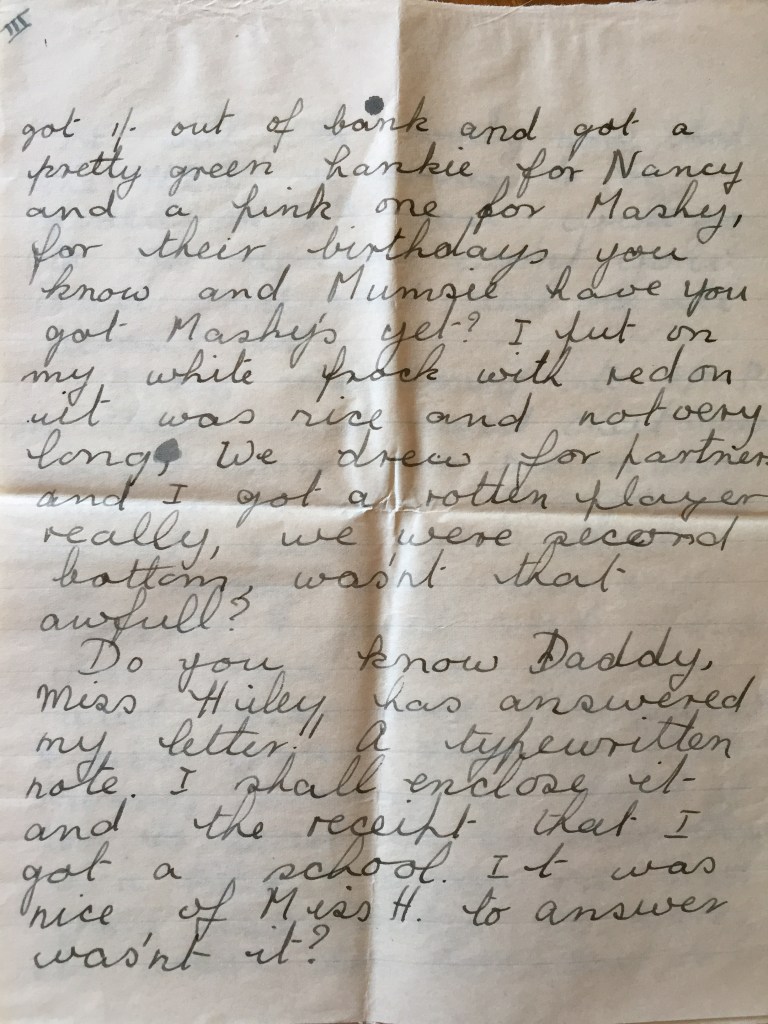 III
got 1/- out of bank and got a
pretty green hankie for Nancy
and a pink one for Mashy,
for their birthdays you
know and Mumsie have you
got Mashy's yet? I put on
my white frock with red on
it was nice and not very
long, We drew for partners
and I got a rotten player
really, we were second
bottom, was'nt that
awfull?
Do you know Daddy,
Miss Huley has answered
my letter!! A typewritten
note. I shall enclose it
and the receipt that I
got a school. It was
nice of Miss H. to answer
was'nt it?